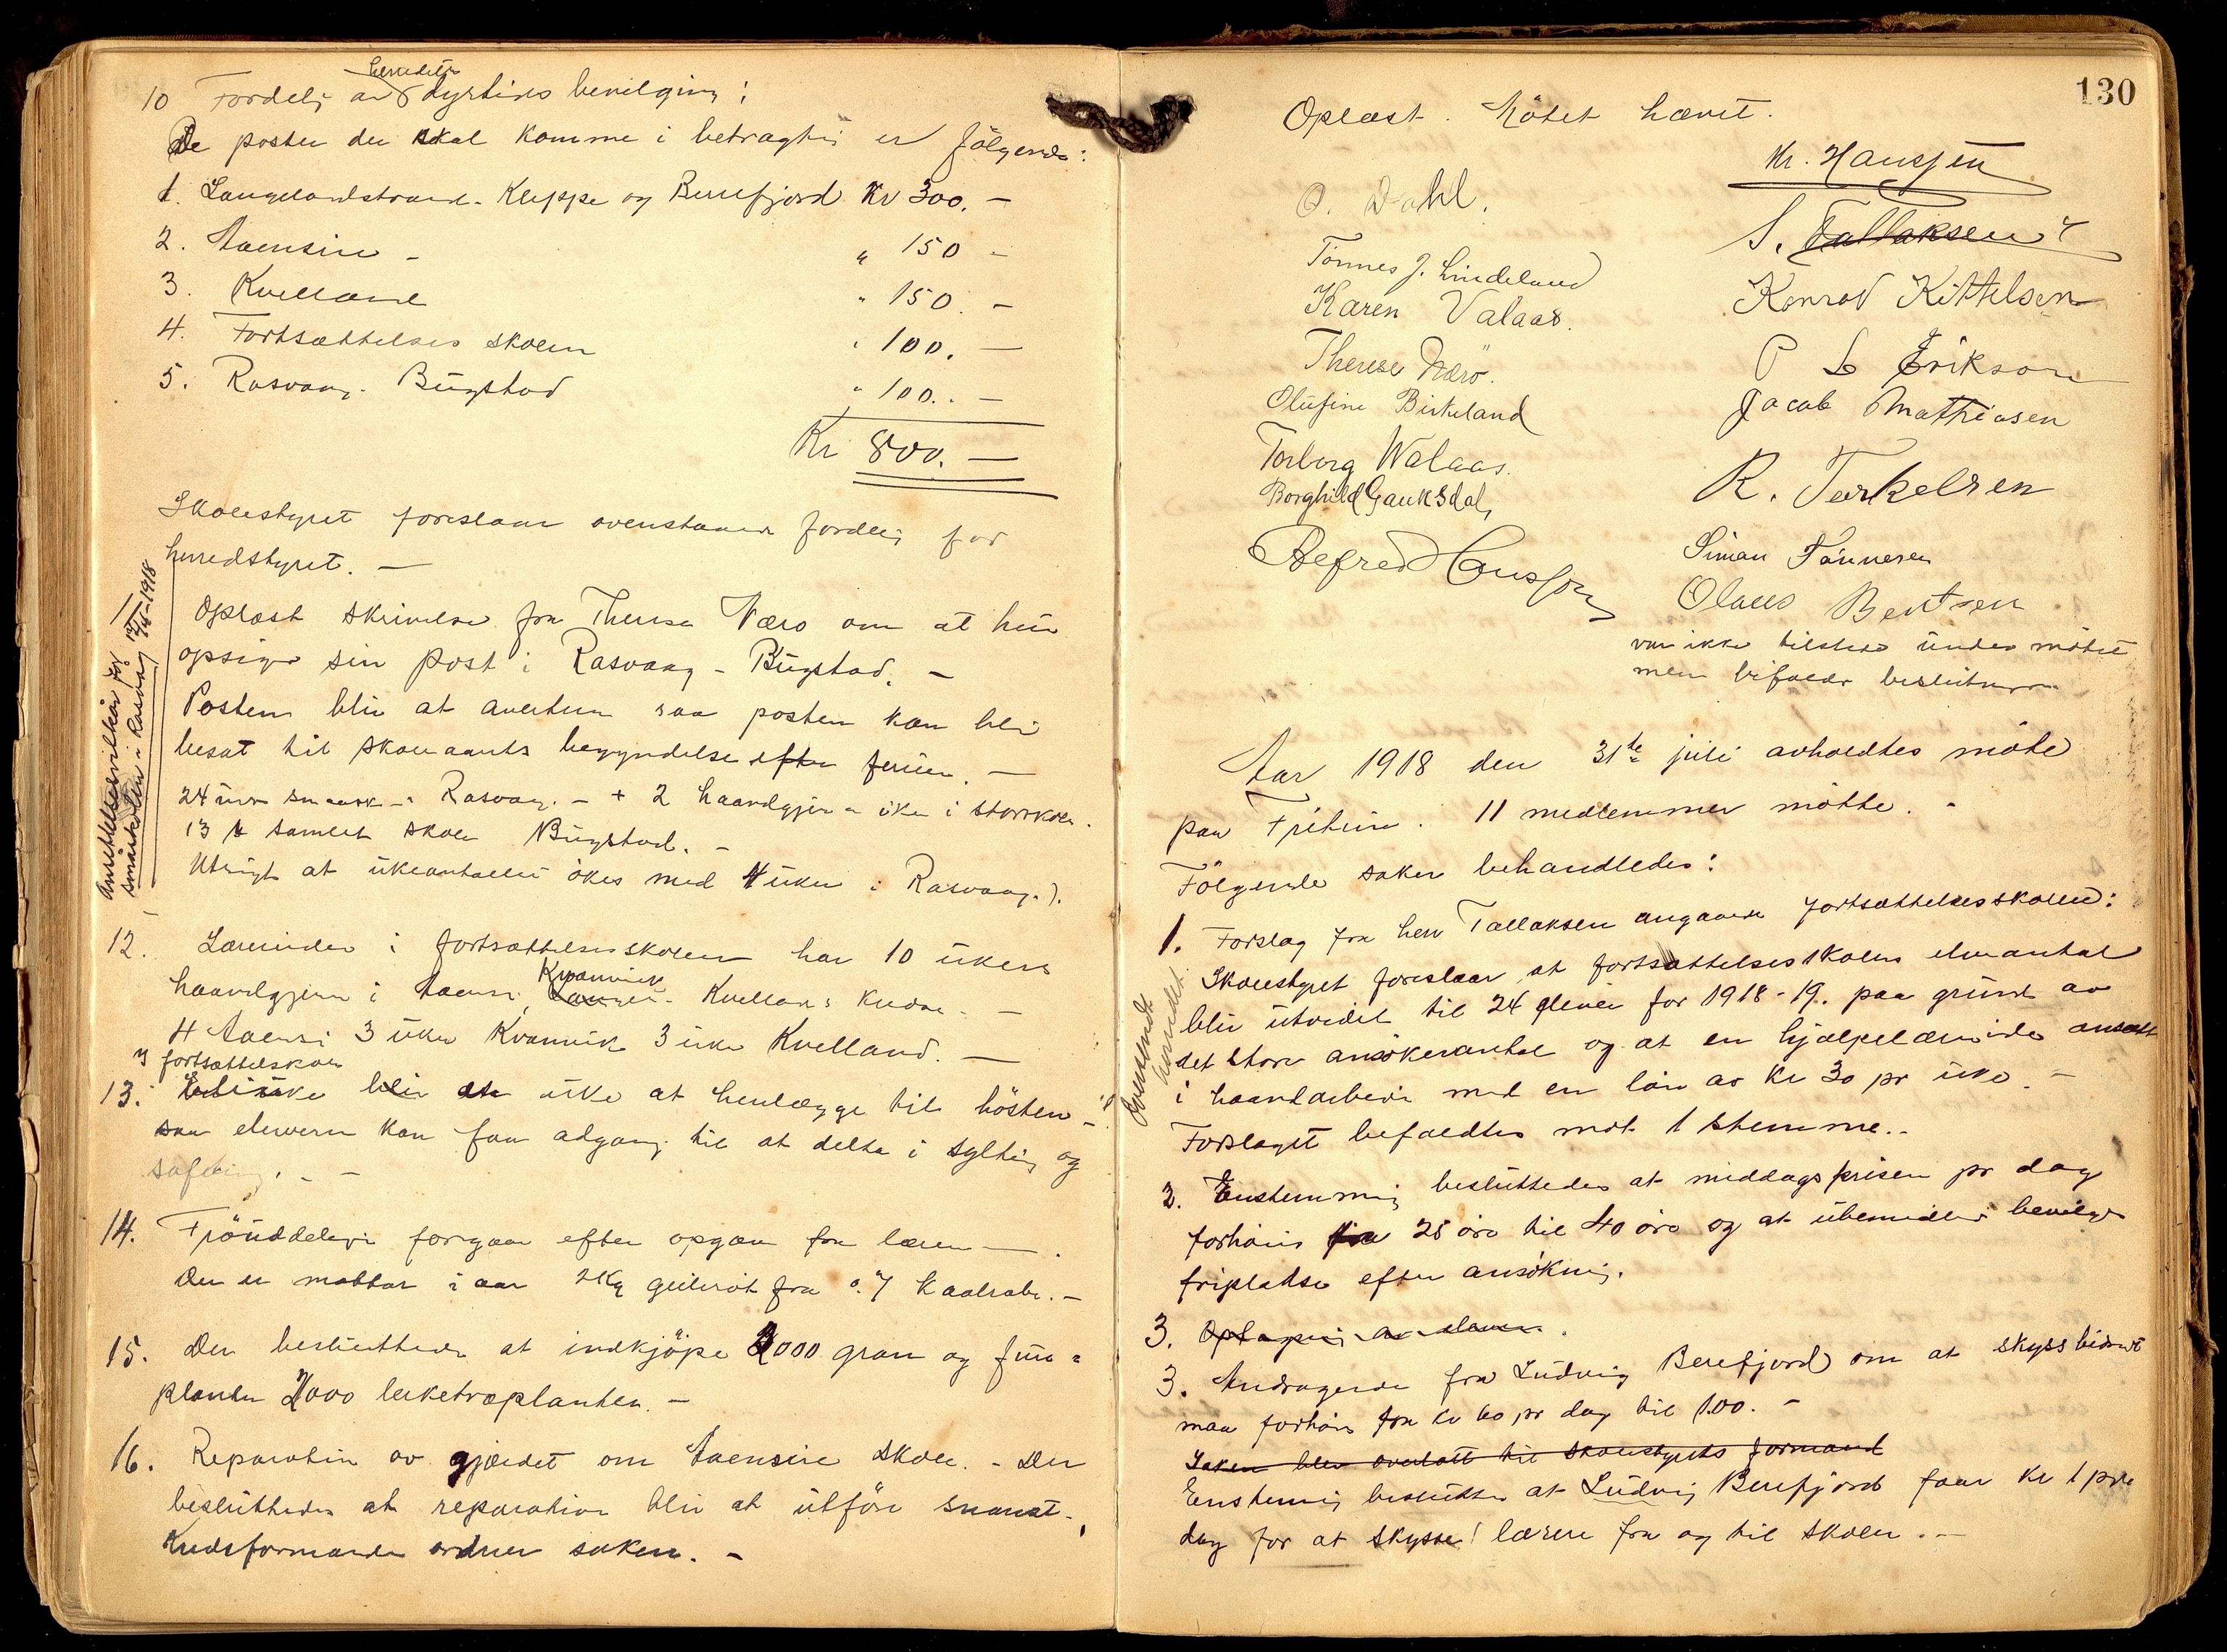 10 Fordelg av herredets dyrtids bevilgning:
De poster der skal komme i betragtn er følgende:
1. Langelandstrand. Kleppe og Berrefjord Kr 300. —
2. Aaensire - " 150 -
3. Kvelland " 150. -
4. Fortsættelses skolen " 100. —
5. Rasvaag. Bugstad " 100. . —
Kr 800. —
Skolestyret foreslaar ovenstaaende fordelig for
herredstyret. —
Ansettelsesvilkår for
småskolen i Rasvåg 12/12-1918
Oplæst skrivelse fra Therese Nærø om at hun
opsiger sin post i Rasvaag - Bugstad. —
Posten blir at avertere saa posten kan bli
besat til skoleaarets begyndelse efter ferien. —
24 uker smaask - i Rasvaag. - + 2 haandgjer - uker i storskolen.
13 u samlet skole Bugstad. -
Utsigt at ukeantallet økes med 4 uker i Rasvaag.).
12. Lærerinden i fortsættelsesskolen har 10 ukers
haandgjern i Aaensi, Kvanvik Kvellands kreds. —
4 Aaensi 3 uker Kvanvik 3 uker Kvelland. —
13. I fortsættelskolen
blir en uke at henlægge til høsten -
saa eleverne kan faa adgang til at delta i sylting og
safting. . -
14. Frøuddeling forgaar efter opgave fra læreren —.
Der er mottat i aar 2 kg gulerot frø 0.7 kaalrabi. —
15. Der besluttedes at indkjøpe 3000 gran og furu=
planter 2000 lerketræplanter. —
16. Reparation av gjærdet om Aaensire skole. - Der
besluttedes at reparation blir at utføre snarest.
Kredsformanden ordner saken. -
130
Oplæst. Møtet hævet.
Kr. Hanssen
O. Dahl.
S. Tallaksen
Tønnes J. Lindeland
Konrad Kittelsen
Karen Valaas.
P L Erikson
Therese Nærø.
Jacob Mathiasen
Olufine Birkeland
Torborg Walaas.
R. Terkelsen
Borghild Gauksdal,
Simon Tønnesen
Alfred Hansson
Olaus Bentsen
var ikke tilstede under møtet
men bifalder beslutningene
Aar 1918 den 31te juli avholdtes møte
paa Fritun. 11 medlemmer møtte. -
Følgende saker behandledes:
1. Forslag fra herr Tallaksen angaaende fortsættelsesskolen:
Skolestyret foreslaar at fortsættelsesskolens elevantal
blir utvidet til 24 elever for 1918-19. paa grund av
det store ansøkerantal og at en hjælpelærerinde ansætt
i haandarbeide med en løn av kr 30 pr uke. —
Oversendt
herredet
Forslaget bifaldtes mot 1 stemme. -
2. Enstemmig besluttedes at middagsprisen pr dag
forhøies fra 25 øre til 40 øre og at ubemidlede bevilges
friplatse efter ansøkning.
3. Optagning av elever.
3. Andragende fra Ludvig Berrefjord om at skyssbidrat
maa forhøies fra kr 60 pr dag til 1.00. -
Saken blev overlatt til skolestyrets formand
Enstemig besluttes at Ludvig Berrefjord faar kr 1 pr
dag for at skysse! lærere fra og til skolen. —